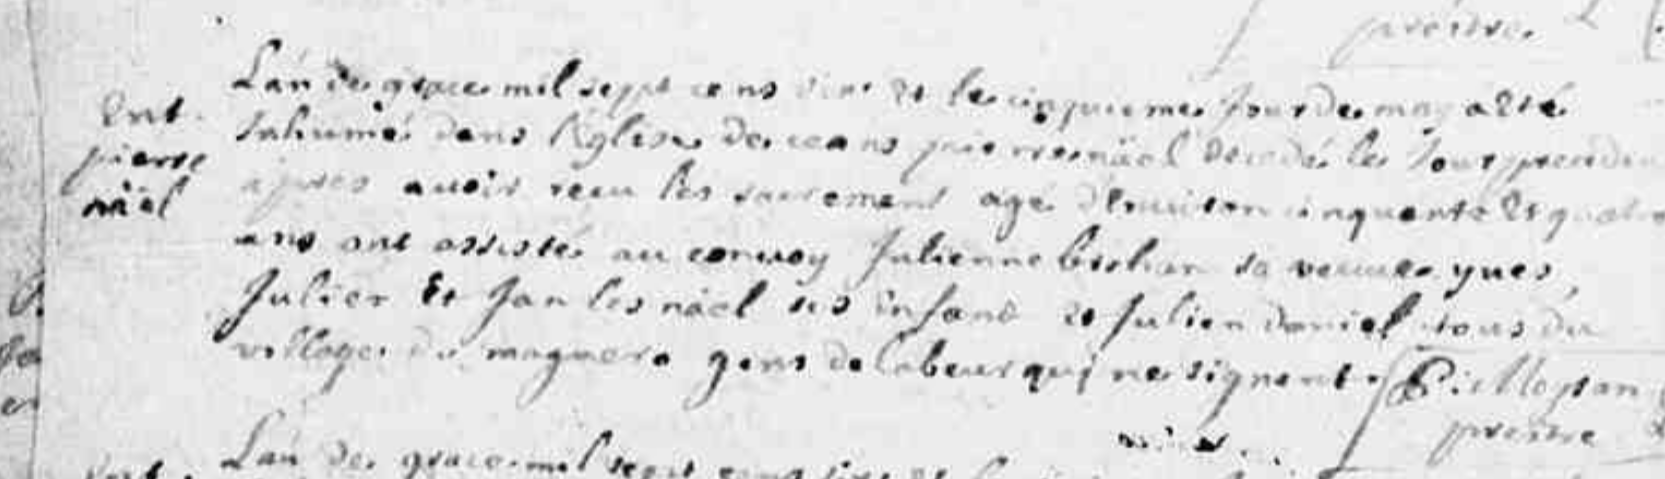 prestre.
Ent.
pierre
näel
Lan de grace mil sept cens vint et le cinquieme Jour de may a été
Inhumé dans l'église de ceans pierre näel décédé le Jour
apres avoir receu les sacrement agé d'environ cinquante et quatre
ans ont assisté au convoy Julienne sa veuve yves,
Julien Et Jan les näel ses enfans et Julien daniel tous du
village du gens de labeur qui ne signent.
prestre
Lan de grace mil sept cens